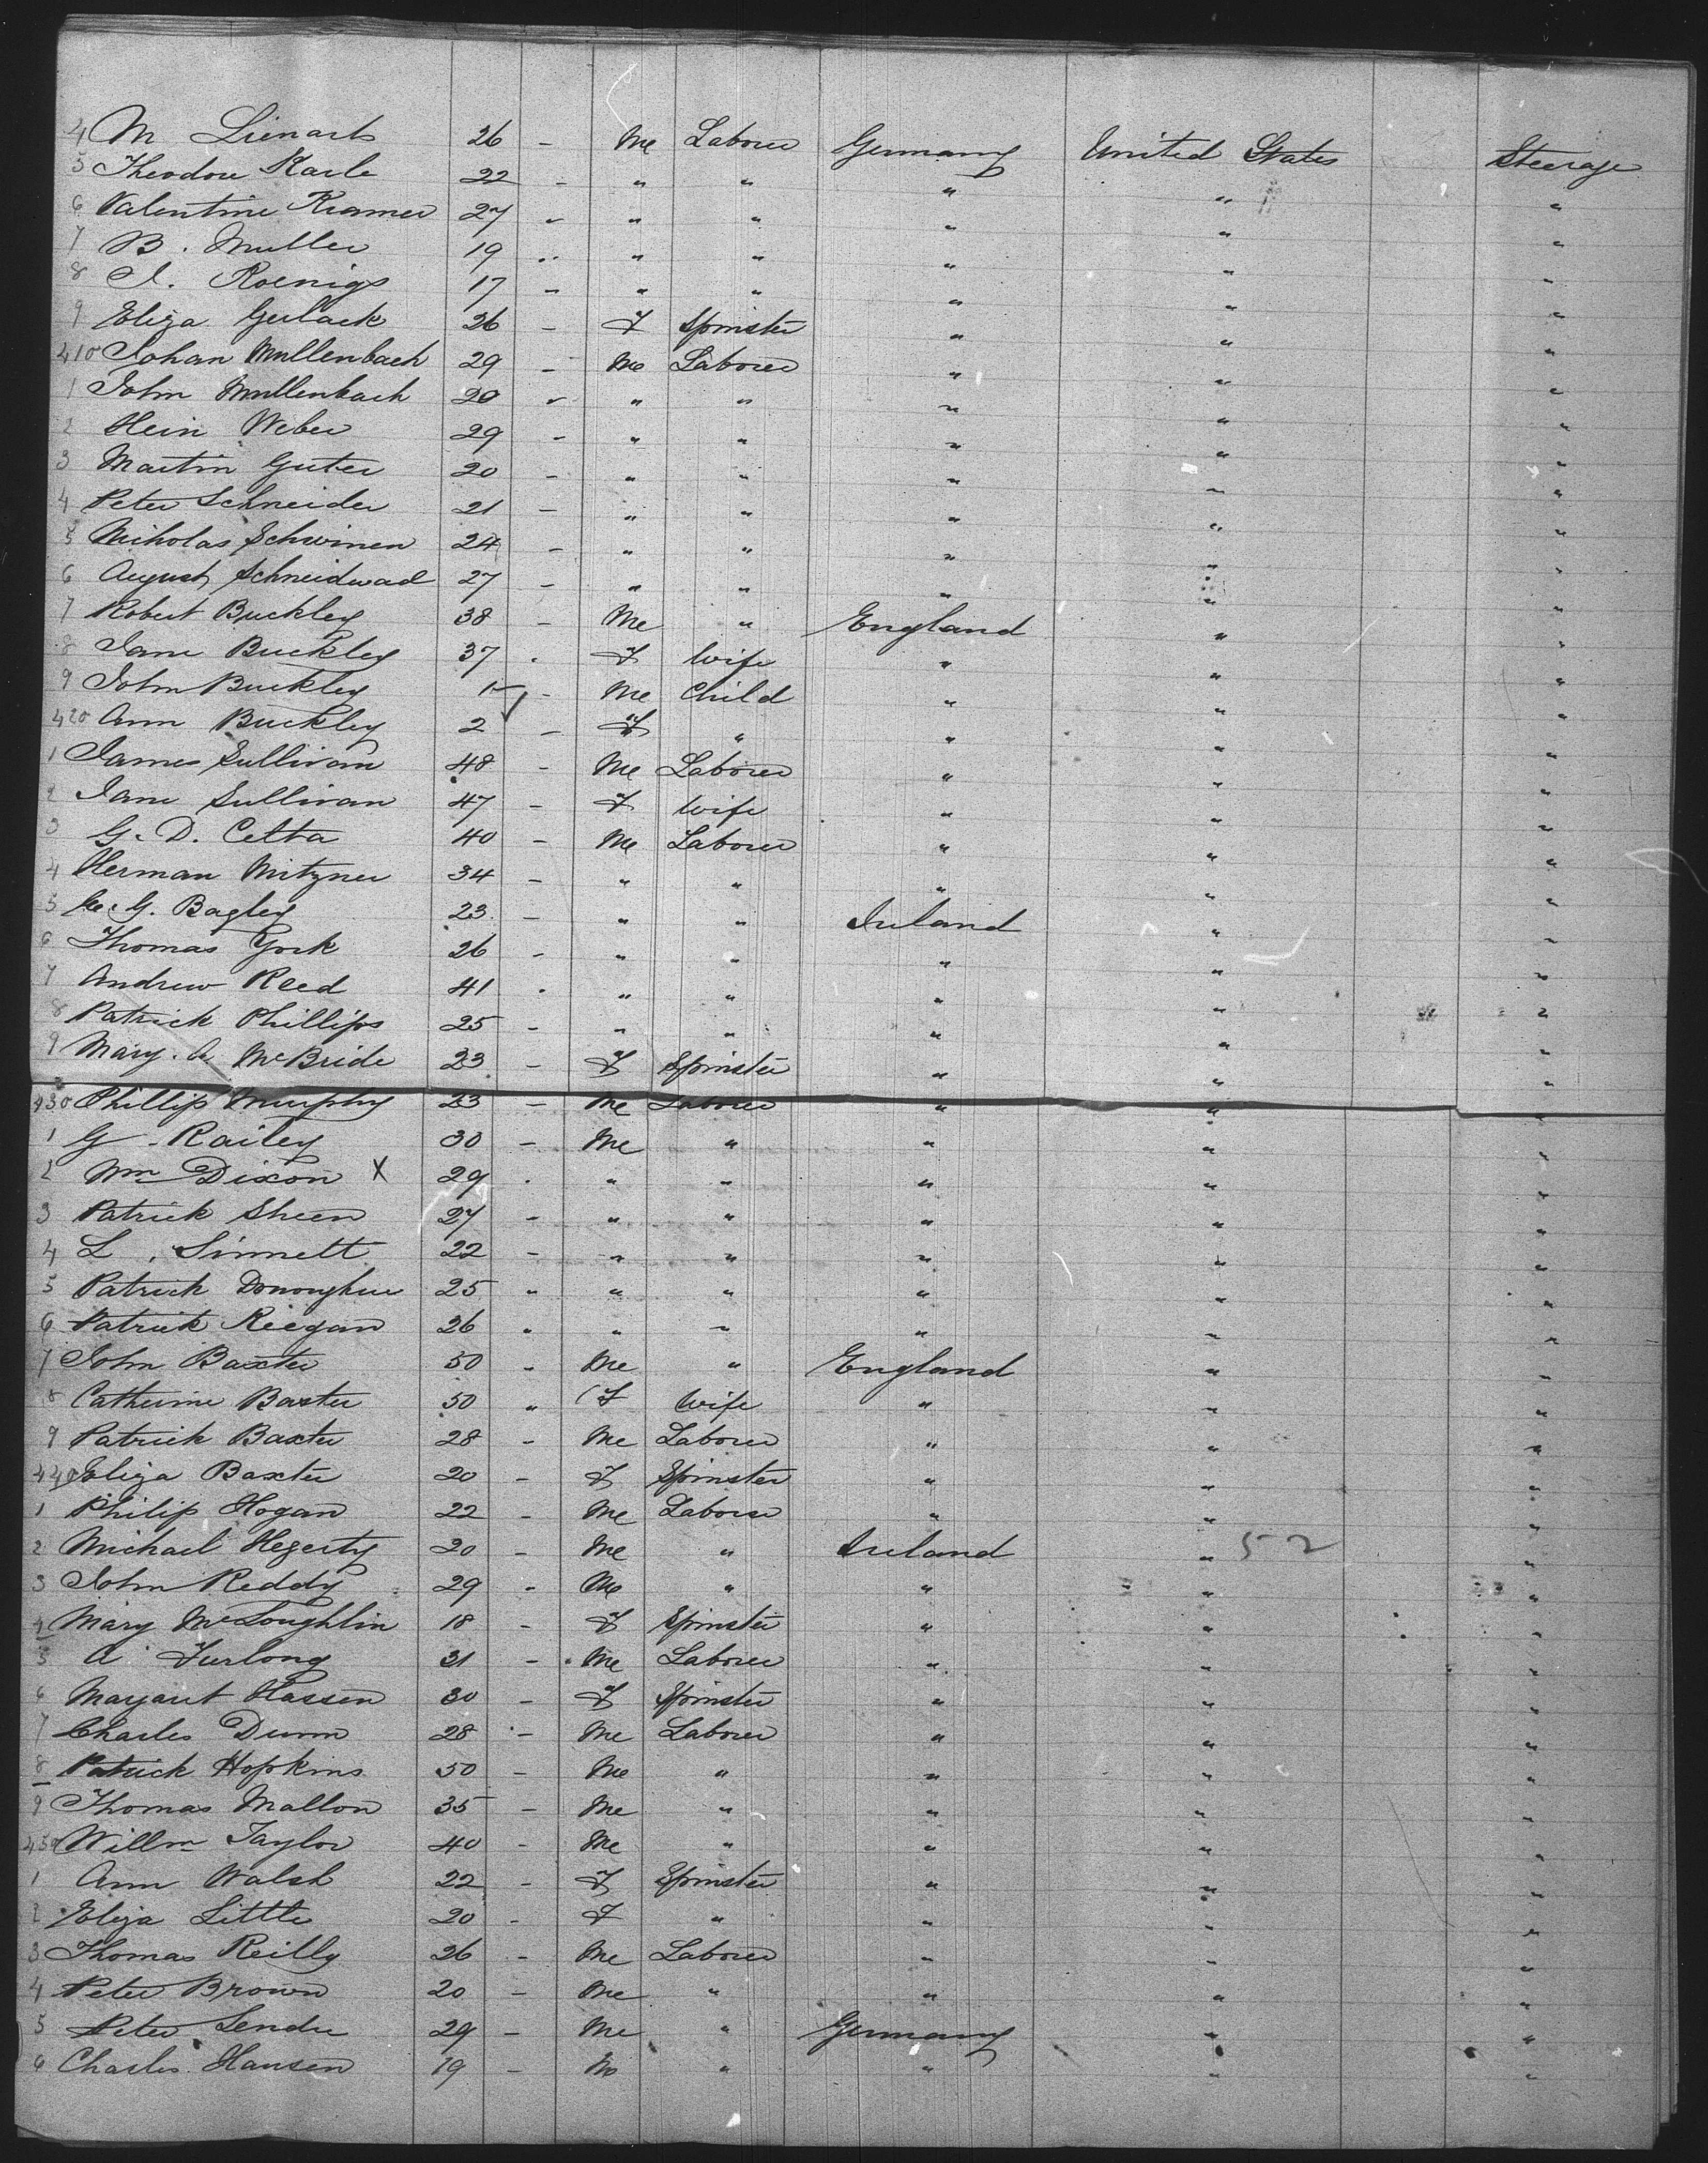 4 M Lienarts 26 - Me Laborer Germany United States Steerage
5 Theodore Karle 22 - " " " " "
6 Valentine Kramer 27 " " " " " "
7 B. Muller 19 " " " " " "
8 J. Koenigs 17 - " " " " "
9 Eliza Gerlack 26 - F Spinster " " "
410 Johan Mullenbach 29 - Me Laborer " " "
1 John Mullenbach 20 " " " " " "
2 Hein Weber 29 - " " " " "
3 Martin Guter 20 - " " " " "
4 Peter Schneider 21 - " " " " "
5 Nicholas Schwinen 24 - " " " " "
6 August Schneidwad 27 - " " " " "
7 Robert Buckley 38 - Me " England " "
8 Jane Buckley 37 - F Wife " " "
9 John Buckley - Me Child " " "
420 Ann Buckley 2 - F " " " "
1 James Sullivan 48 - Me Laborer " " "
2 Jane Sullivan 47 - F Wife " " "
3 G. D. Celta 40 - Me Laborer " " "
4 Herman Mitzner 34 - " " " " "
5 G. Bagley 23 - " " Ireland " "
6 Thomas York 26 - " " " " "
7 Andrew Reed 41 - " " " " "
8 Patrick Phillips 25 - " " " " "
9 Mary. A McBride 23 - F Spinster " " "
430 Phillip Murphy 23 - Me Laborer " " "
1 G Railey 30 - Me " " " "
2 Wm Dixon X 29 - " " " " "
3 Patrick Sheen 27 - " " " " "
4 L. Sinnett 22 - " " " " "
5 Patrick Donoughue 25 " " " " " "
6 Patrick Reegan 26 " " " " " "
7 John Baxter 50 - Me " England " "
8 Catherine Baxter 50 " F Wife " " "
9 Patrick Baxter 28 - Me Laborer " " "
440 Eliza Baxter 20 - F Spinster " " "
1 Philip Hogan 22 - Me Laborer " " "
2 Michael Hegerty 20 - Me " Ireland " 52 "
3 John Reddy 29 - Me " " " "
4 Mary McLoughlin 18 - F Spinster " " "
5 A Furlong 31 - Me Laborer " " "
6 Margaret Hassen 30 - F Spinster " " "
7 Charles Dunn 28 - Me Laborer " " "
8 Patrick Hopkins 50 - Me " " " "
9 Thomas Mallon 35 - Me " " " "
450 Willm Taylor 40 - Me " " " "
1 Ann Walsh 22 - F Spinster " " "
2 Eliza Little 20 - F " " " "
3 Thomas Reilly 26 - Me Laborer " " "
4 Peter Brown 20 - Me " " " "
5 Peter Lendre 29 - Me " Germany " "
6 Charles Hansen 19 - M " " " "